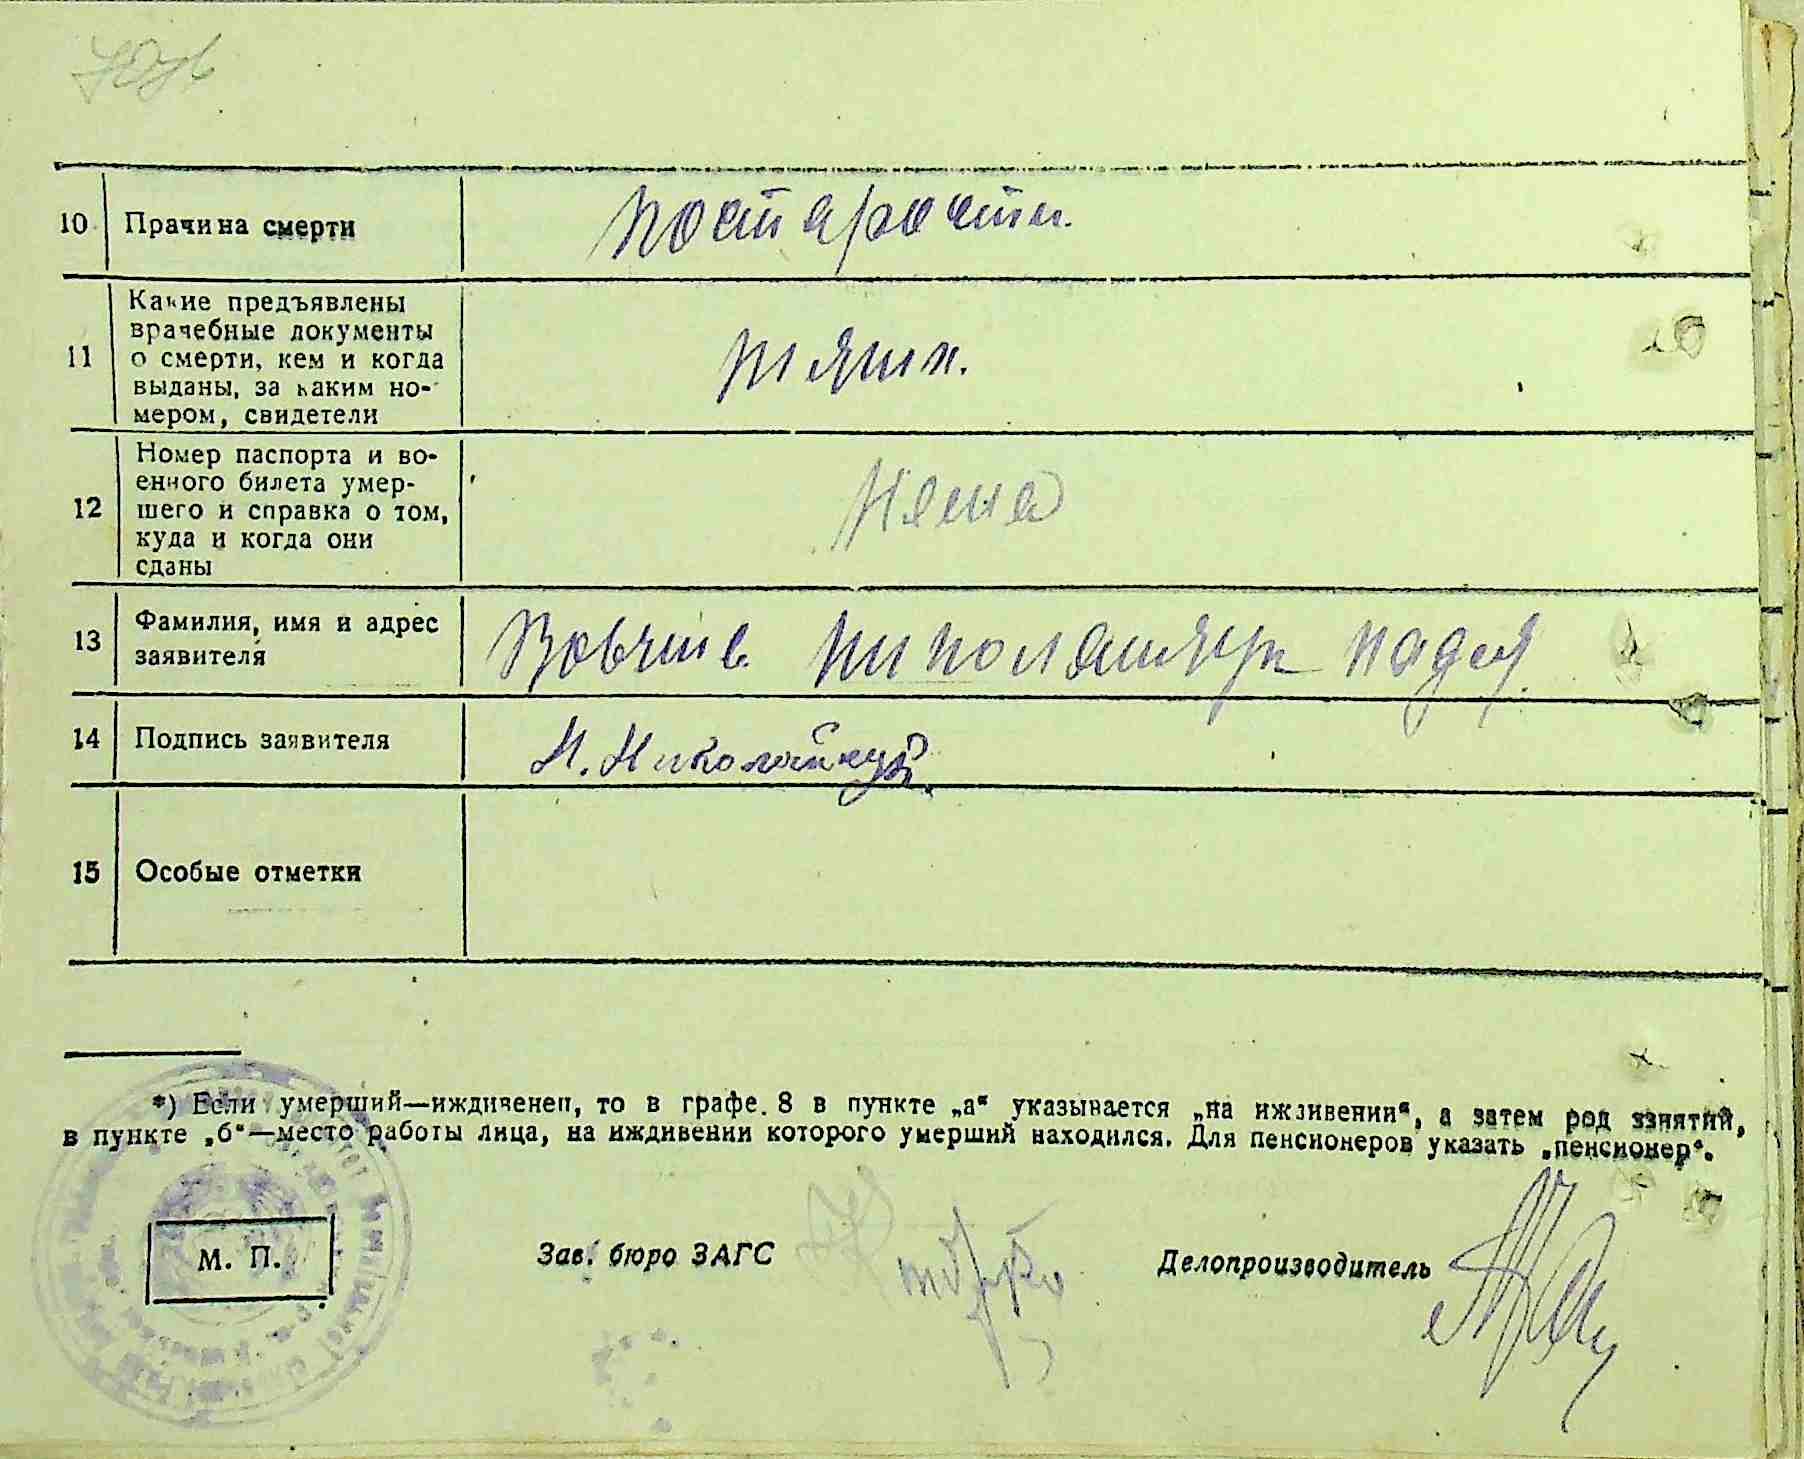 10 Прачина смерти
по старости.
11 Какие предъявлены
врачебные документы
о смерти, кем и когда
выданы, за каким но-
мером, свидетели
12 Номер паспорта и во-
енного билета умер-
шего и справка о том,
куда и когда они
сданы
Нема
13 Фамилия, имя и адрес
заявителя
14 Подпись заявителя
Н. Николайчук
15 Особые отметки
*) Если умерший—иждивенец, то в графе. 8 в пункте „а“ указывается „на иждивении“, а затем род занятий,
в пункте „б“—место работы лица, на иждивении которого умерший находился. Для пенсионеров указать „пенсионер“.
М. П.
Зав. бюро ЗАГС
Делопроизводитель